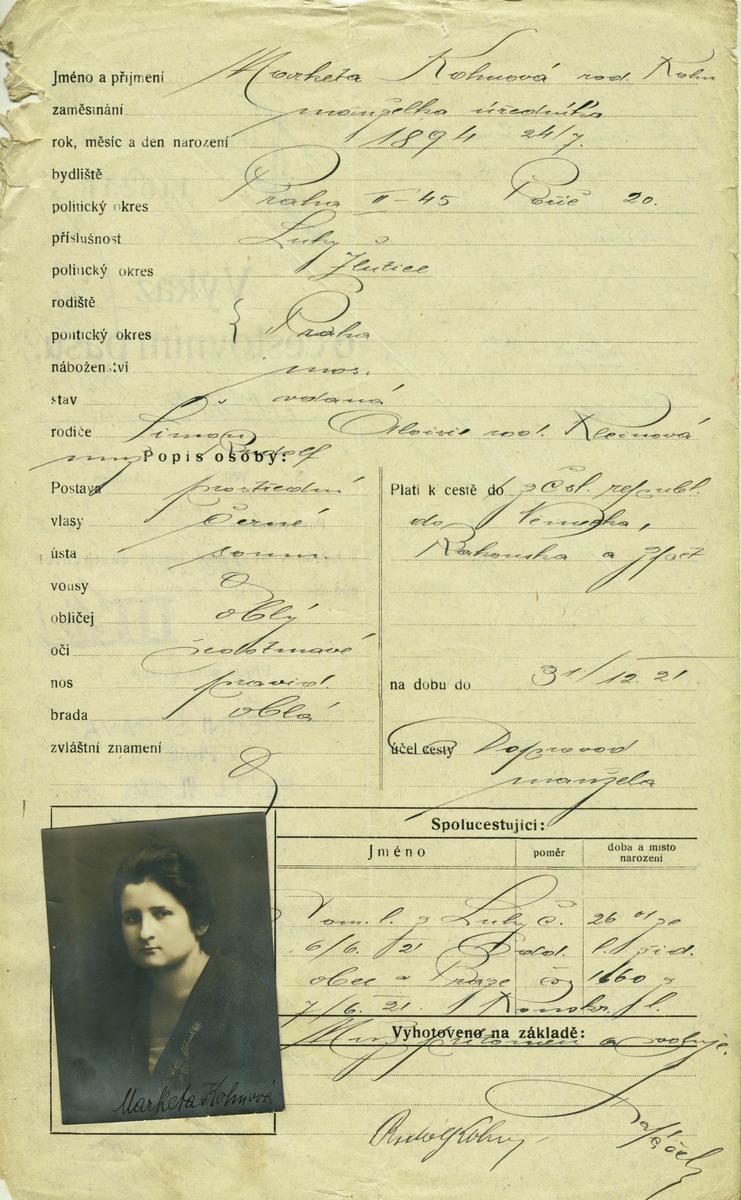 Jméno a příjmení Markéta Kohnová roz. Kohn
zaměstnání manželka úředníka
rok, měsíc a den narození 1894 24/7.
bydliště
politický okres Praha II-45 Poříč 20.
příslušnost Luky
politický okres Žlutice
rodiště
politický okres Praha
náboženství mos.
stav vdaná
rodiče Simon Aloisie roz. Kleinová
muž Rudolf
Popis osoby:
Postava prostřední
vlasy černé
ústa soum.
vousy
obličej oblý
oči šedotmavé
nos pravid.
brada oblá
zvláštní znamení
Platí k cestě do z Čsl. republ.
do Německa,
Rakouska a zpět
na dobu do 31/12. 21
účel cesty Doprovod
manžela
Spolucestující:
Jméno poměr doba a místo narození
Dom. l. z Luky č. 26
6/6. 21 l.
obec Praze 1660
7/6. 21.
Vyhotoveno na základě:
Muž přítomen a svoluje.
Rudolf Kohn
Marketa Kohnová